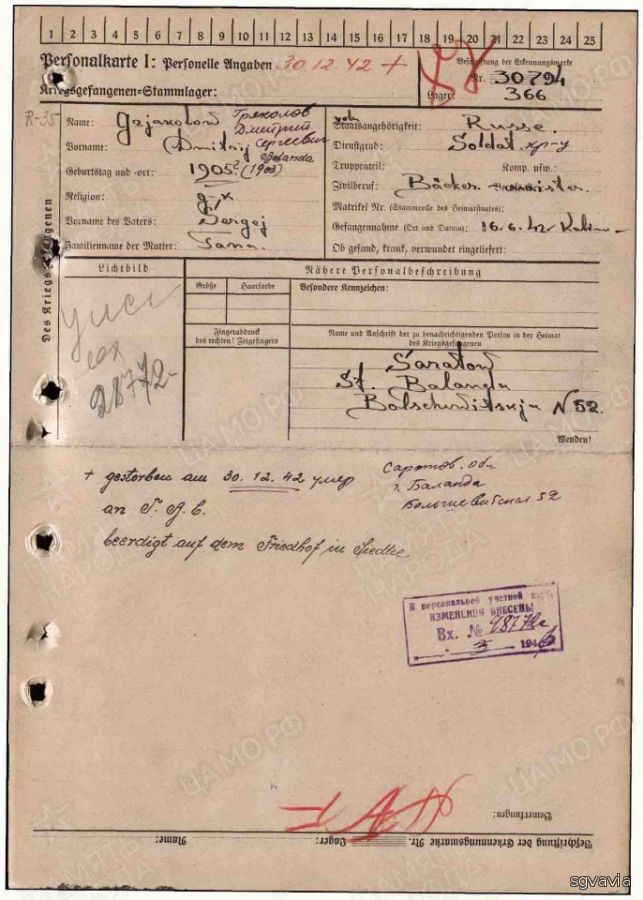 1 2 3 4 5 6 7 8 9 10 11 12 13 14 15 16 17 18 19 20 21 22 23 24 25
Personalkarte I: Personelle Angaben 30.12.42 +
Kriegsgefangenen=Stammlager:
Beschriftung der Erkennungsmarke
Nr. 30794
Lager: 366
Des Kriegsgefangenen
R-35
Name:
Дмитрий
Vorname: Dmitrij Сергеевич
Geburtstag und -ort: 1905
Religion:
Vorname des Vaters: Sergej
Familienname der Mutter:
Staatsangehörigkeit: Russe.
Dienstgrad: Soldat кр-ц
Truppenteil: Komp. usw.:
Zivilberuf: Bäcker
Matrikel Nr. (Stammrolle des Heimatstaates):
Gefangennahme (Ort und Datum): 16.6.42
Ob gesund, krank, verwundet eingeliefert:
Lichtbild
28772-
Nähere Personalbeschreibung
Größe Haarfarbe Besondere Kennzeichen:
Fingerabdruck
des rechten! Zeigefingers
Name und Anschrift der zu benachrichtigenden Person in der Heimat
des Kriegsgefangenen
Saratow
St. Balanda
N 52.
Wenden!
+ gestorben am 30.12.42 умер
an
beerdigt auf dem Friedhof in Siedlce
Саратов. обл
г. Баланда
Большевистская 52
В персональной учетной карт.
ИЗМЕНЕНИЯ ВНЕСЕНЫ
Вх. № 28772с
3 1946
Bemerkungen:
Beschriftung der Erkennungsmarke Nr. Lager: Name:
ЦАМО.РФ
ПАМЯТЬ НАРОДА
sgvavia